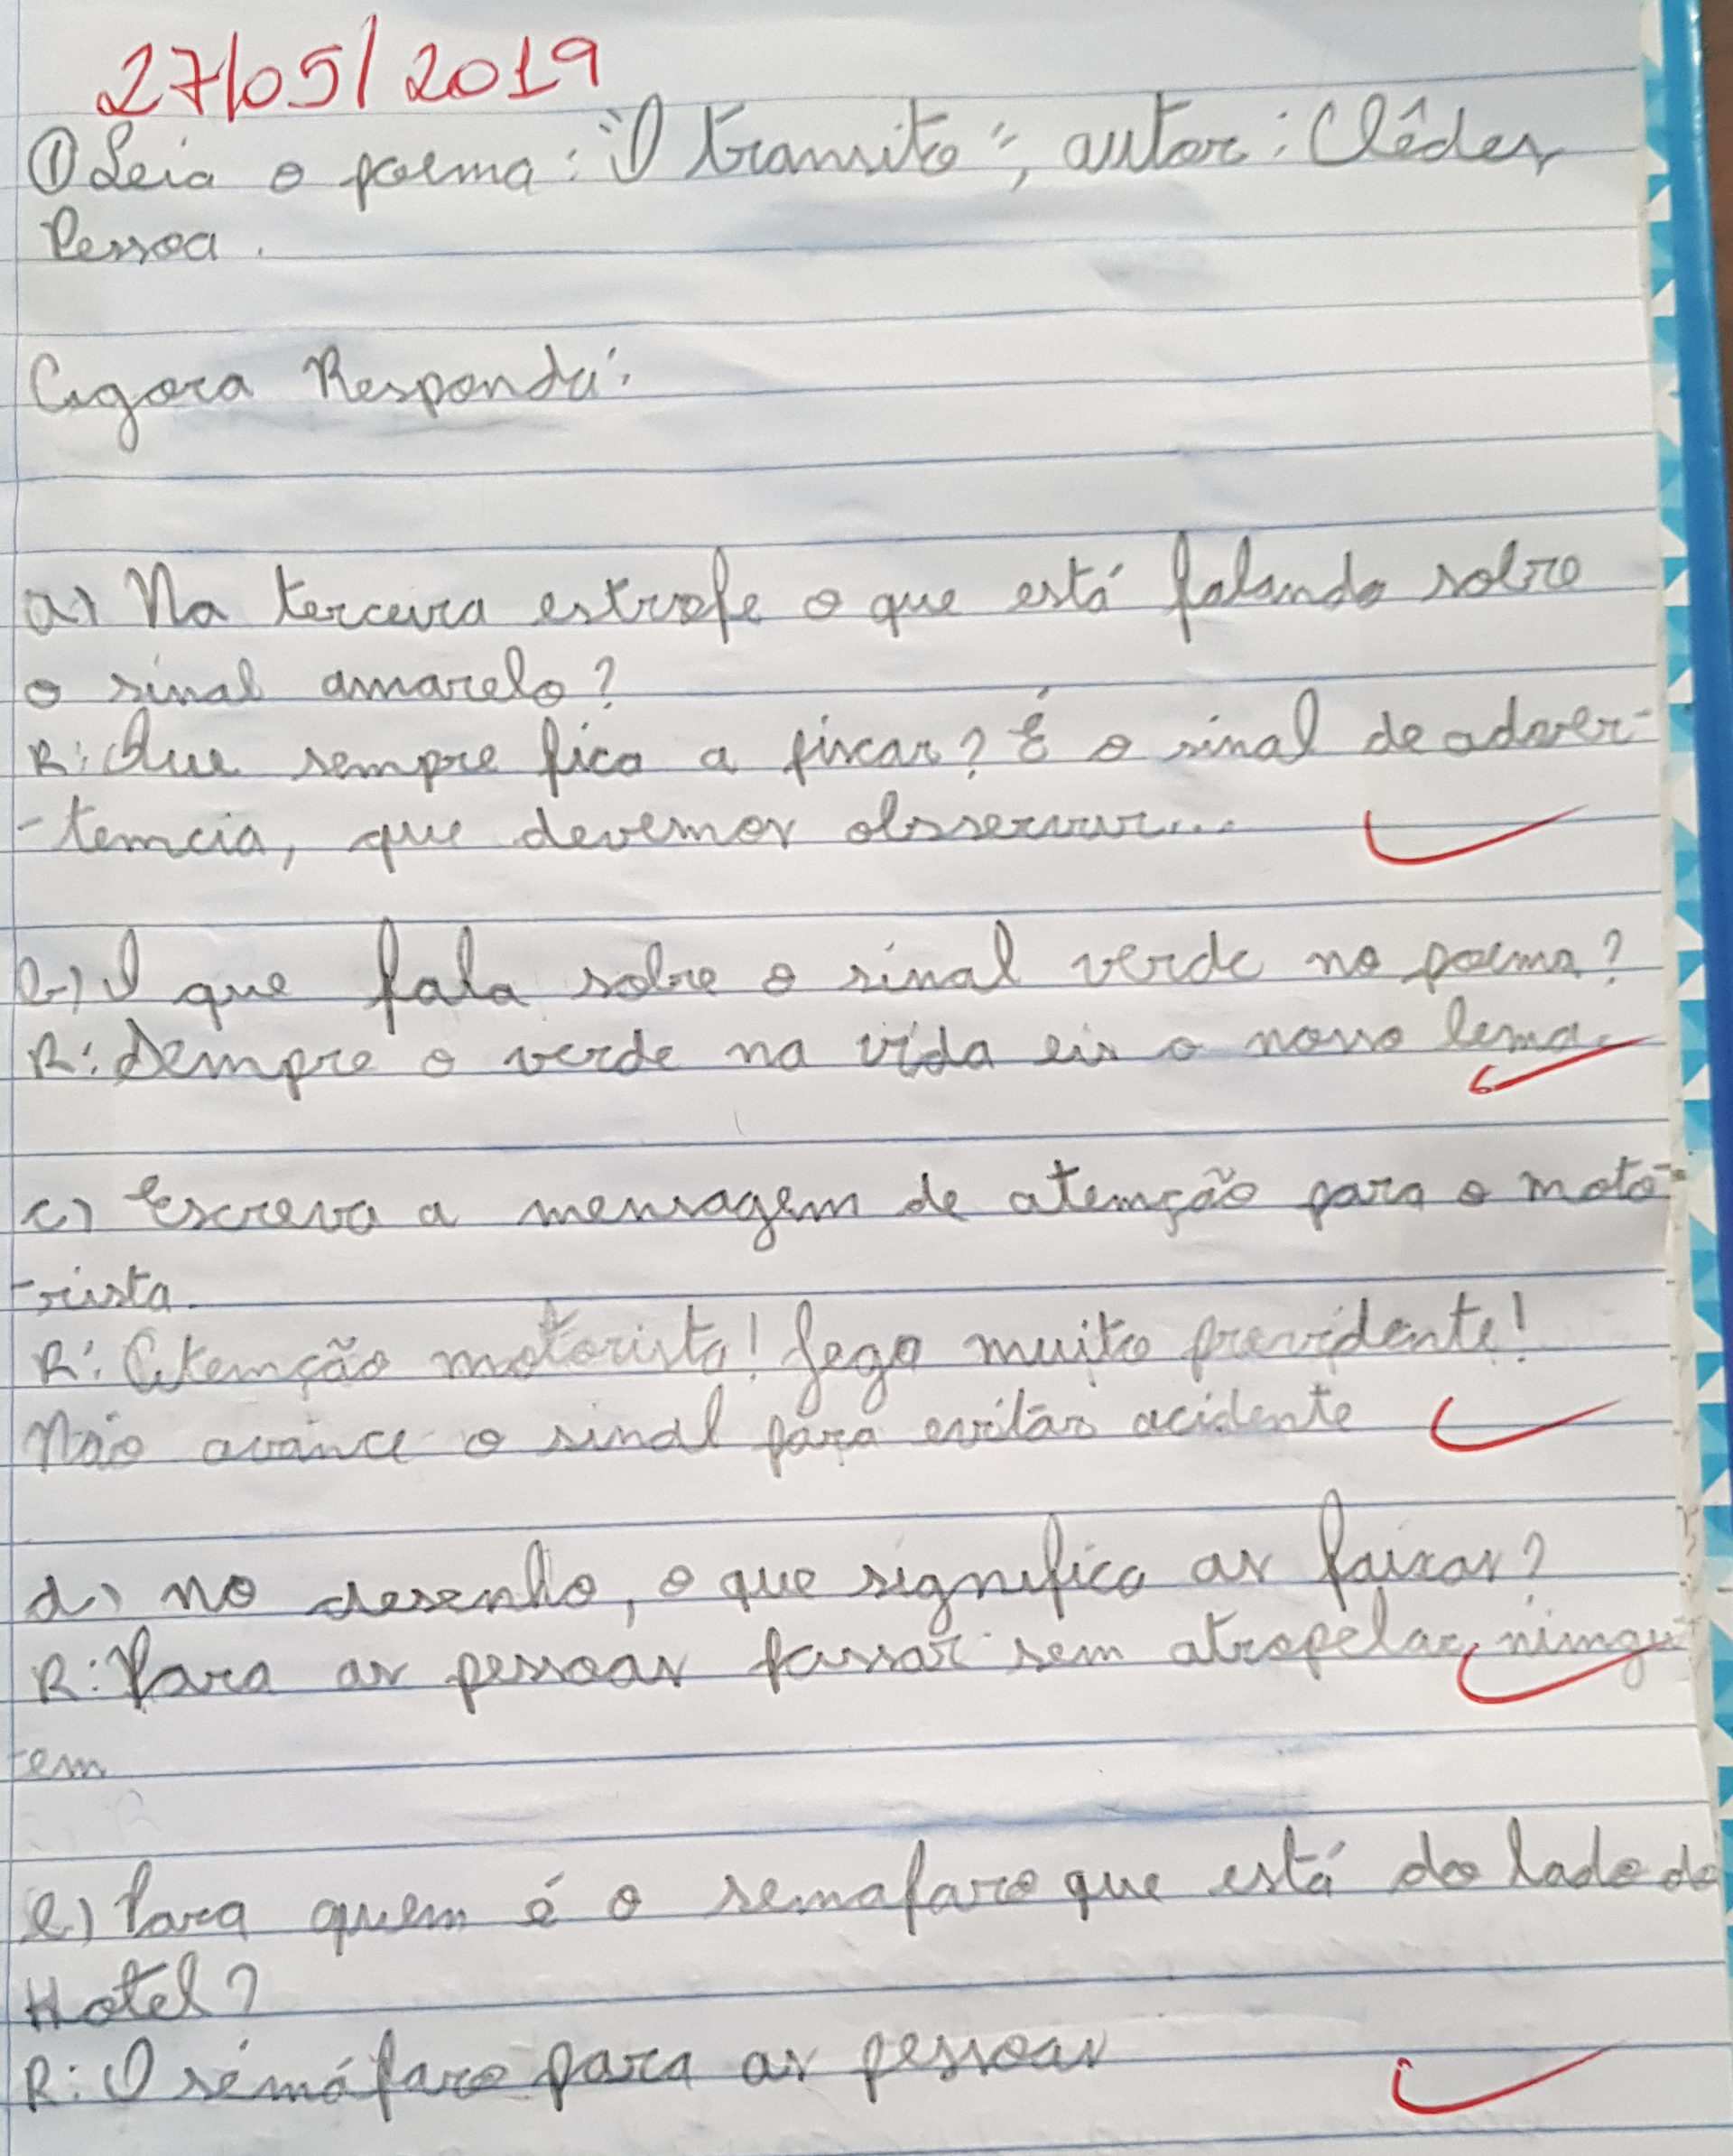 27/05/2019
① Leia o poema: "O tramsito", autor: Clêdes
Pessoa.
Agora Responda:
a) Na terceira estrofe o que está falando sobre
o sinal amarelo?
R: Que sempre fica a piscar? É o sinal de adver-
-temcia, que devemos obsservar...
b) O que fala sobre o sinal verde no poema?
R: Sempre o verde na vida eis o nosso lema.
c) Escreva a mensagem de atemção para o moto-
-rista.
R: Atemção motorista! Sega muito previdente!
Não avance o sinal para evitar acidente
d) no desenho, o que significa as faixas?
R: Para as pessoas passar sem atropelar nimgu-
-em
e) Para quem é o semafaro que está do lado do
Hotel?
R: O semáfaro para as pessoas